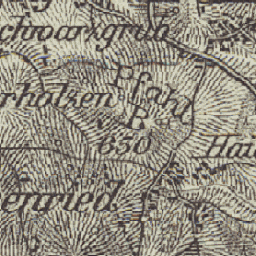 chwarzgrub
Pfahl
rholzen
B.
650
Hai
enried